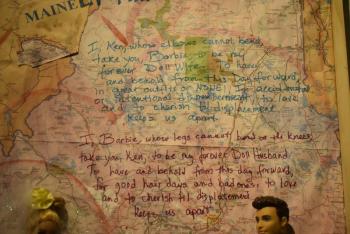 MAINELY
I, Ken, whose elbows cannot bend,
take you, Barbie, to be my
forever Doll Wife. To have
and behold from this day forward,
in great outfits or NONE! If accidental
or intentional dismemberment, to love
and to cherish til displacement
keeps us apart.
I, Barbie, whose legs cannot bend at the knees,
take you, Ken, to be my forever Doll Husband.
To have and behold from this day forward,
for good hair days and bad ones, to love
and to cherish til displacement
keeps us apart.